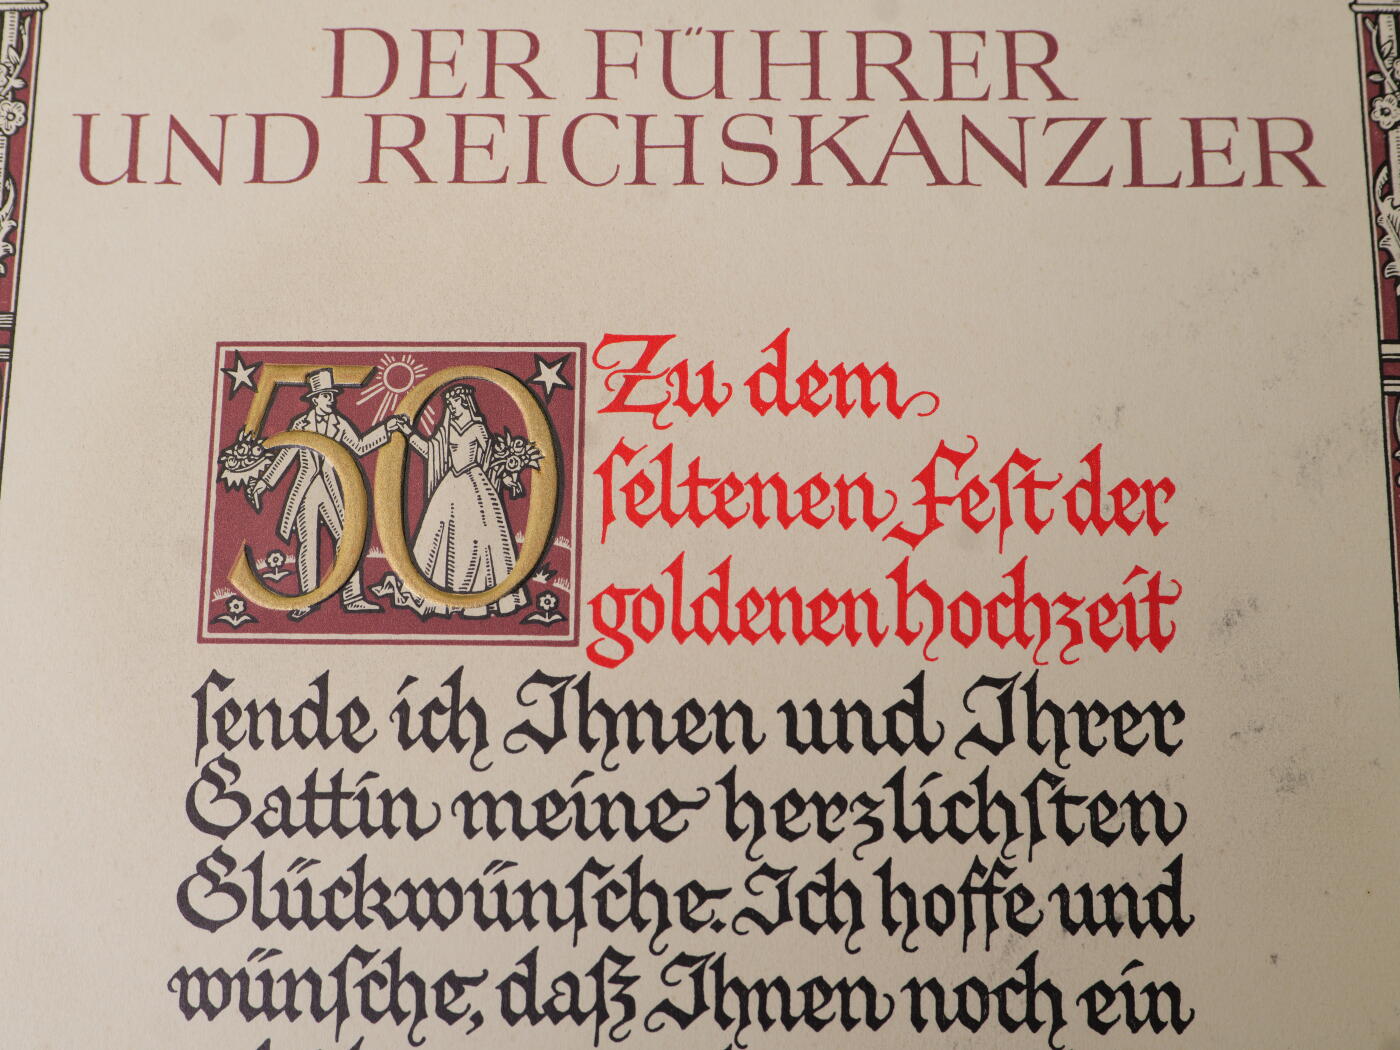 DER FÜHRER
UND REICHSKANZLER
50
Zu dem
seltenen Fest der
goldenen Hochzeit
sende ich Ihnen und Ihrer
Gattin meine herzlichsten
Glückwünsche. Ich hoffe und
wünsche, daß Ihnen noch ein